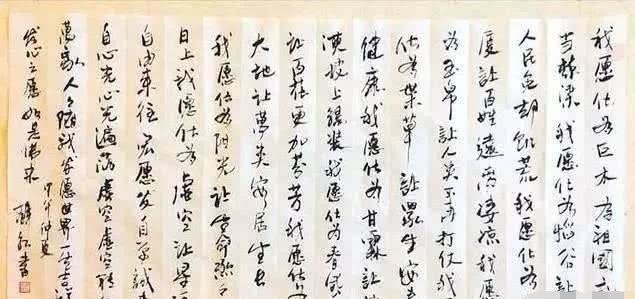 我愿化为巨木为祖國
当栋梁我愿化为稻谷让
人民免却饥荒我愿化为
厦让百姓遠离凄凉我愿
为玉帛让人类不再打仗我
化为药草让众生
健康我愿化为甘霖让
漠披上绿装我愿化为香
让百花更加芬芳我愿化
大地让萬类安居生长
我愿化为阳光让生命
日上我愿化为虚空让星
自由来往宏愿发自
自心光心光遍满虚空虚空
人人随我发愿世界一片吉
发心立愿如是佛来
甲午仲夏
书